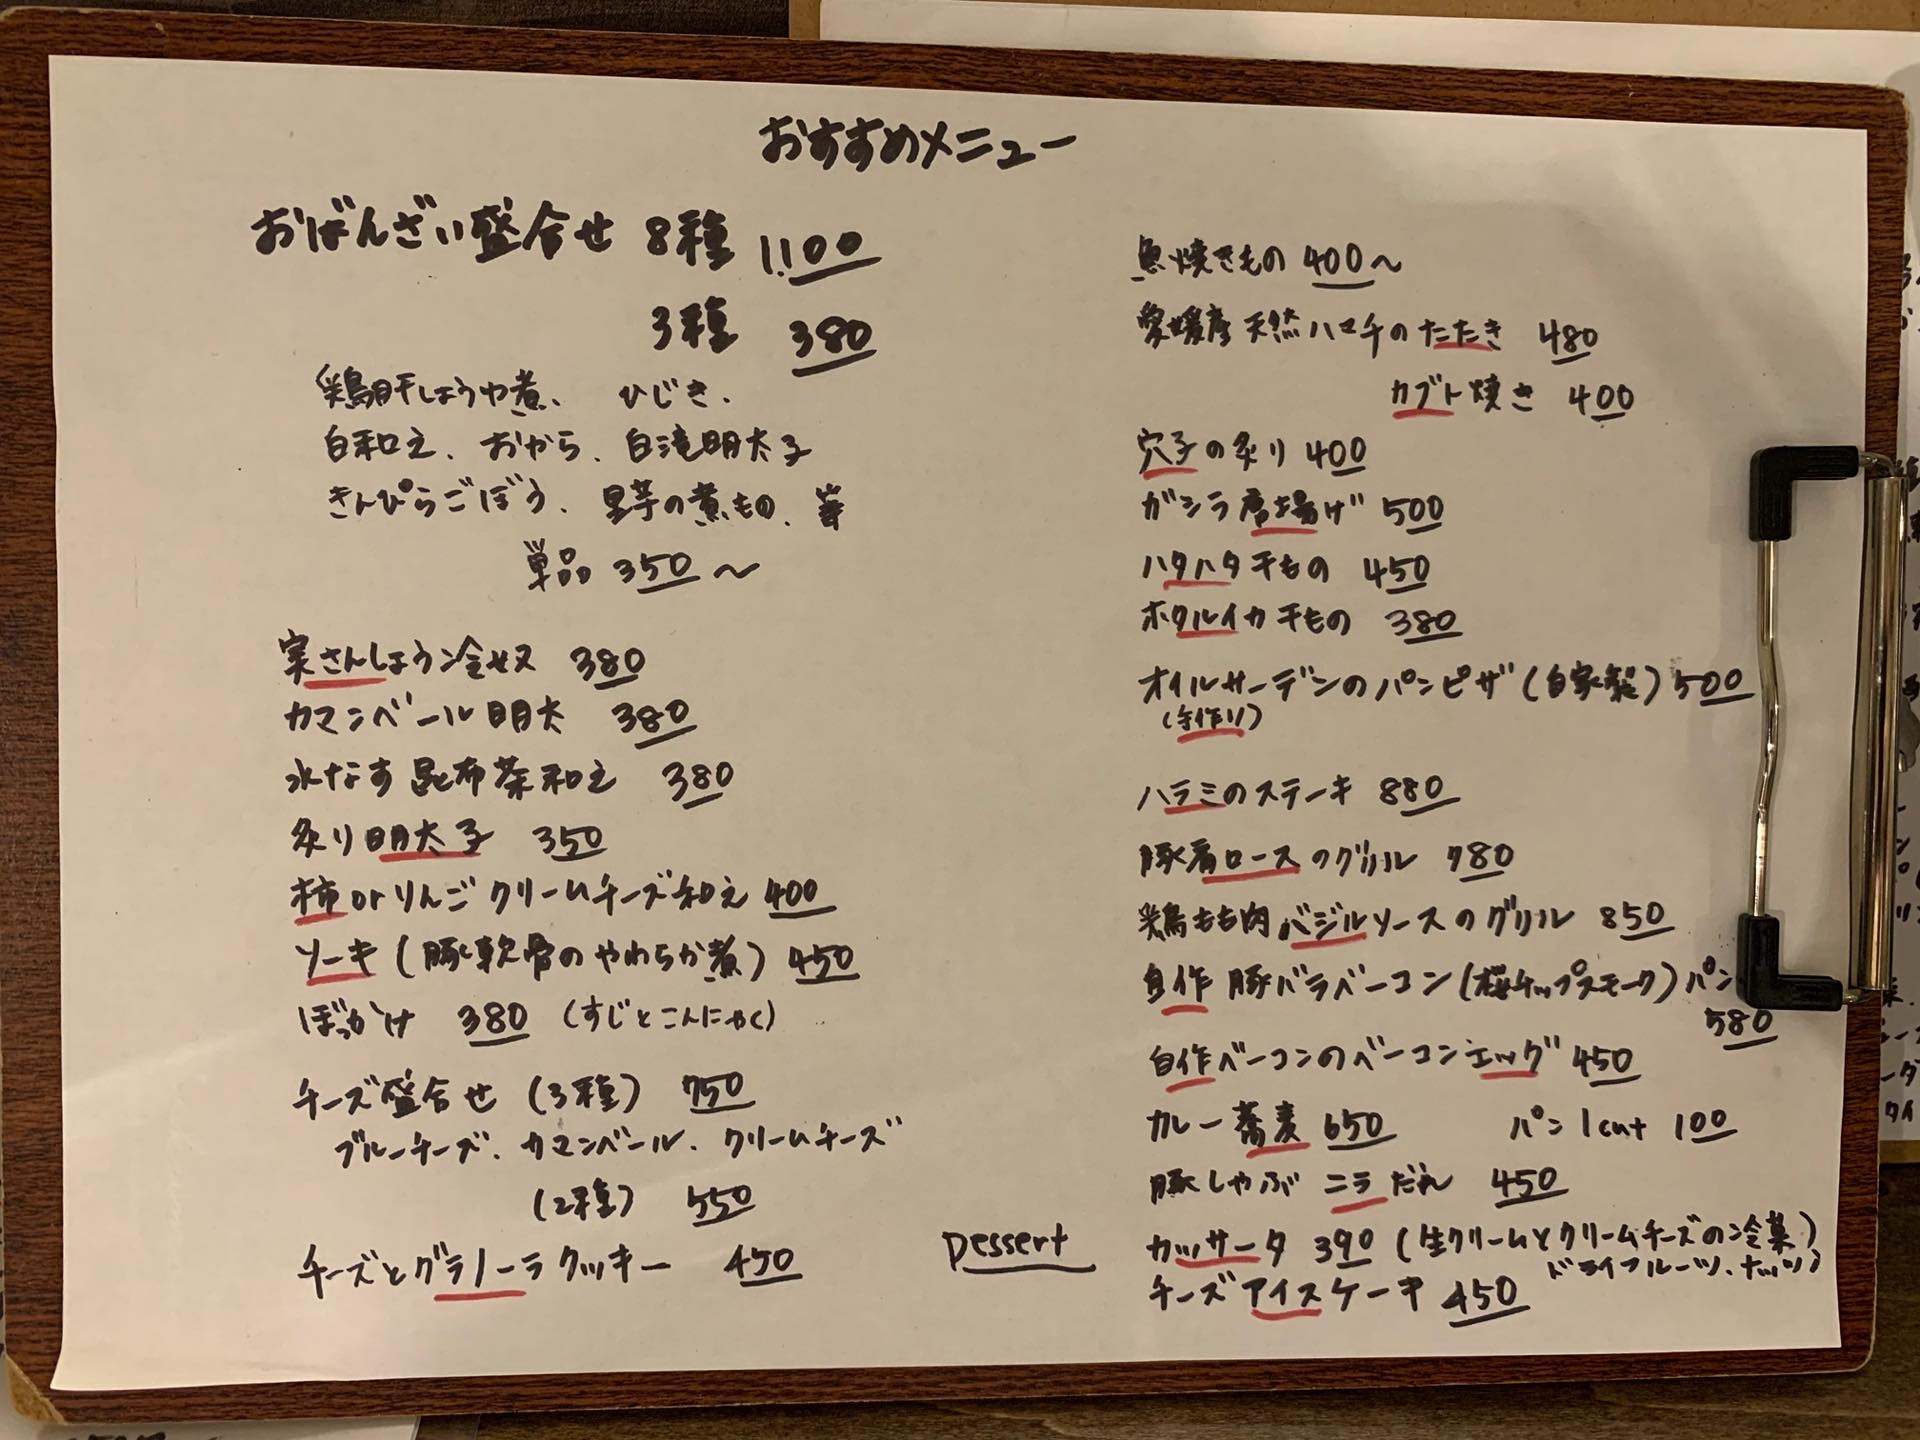 おすすめメニュー
おばんざい盛合せ 8種 1.100
3種 380
鶏肝しょうゆ煮、 ひじき、
白和え、おから、白滝明太子
きんぴらごぼう、里芋の煮もの、等
単品 350〜
実さんしょう冷奴 380
カマンベール明太 380
水なす昆布茶和え 380
炙り明太子 350
柿orりんごクリームチーズ和え 400
ソーキ(豚軟骨のやわらか煮) 450
ぼっかけ 380 (すじとこんにゃく)
チーズ盛合せ (3種) 750
ブルーチーズ、カマンベール、クリームチーズ
(2種) 550
チーズとグラノーラクッキー 450
魚焼きもの 400〜
愛媛産天然ハマチのたたき 480
カブト焼き 400
穴子の炙り 400
ガシラ唐揚げ 500
ハタハタ干もの 450
ホタルイカ干もの 380
オイルサーデンのパンピザ(自家製) 500
(手作り)
ハラミのステーキ 880
豚肩ロースのグリル 780
鶏もも肉バジルソースのグリル 850
自作 豚バラベーコン(桜チップスモーク) パン
580
自作ベーコンのベーコンエッグ 450
カレー蕎麦 650 パン1cut 100
豚しゃぶニラだれ 450
Dessert カッサータ 390 (生クリームとクリームチーズの冷菓)
ドライフルーツ、ナッツ)
チーズアイスケーキ 450